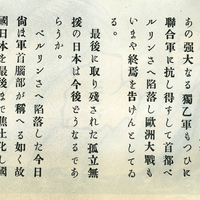 あの强大なる獨乙軍もつひに
聯合軍に抗し得すして首都ベ
ルリンさへ陷落し歐洲大戰も
いまや終焉を告げんとしてゐ
る。
最後に取り殘された孤立無
援の日本は今後どうなるであ
らうか。
ベルリンさへ陷落した今日
尙は軍首腦部が稱へる如く故
國日本を最後まで焦土化し國